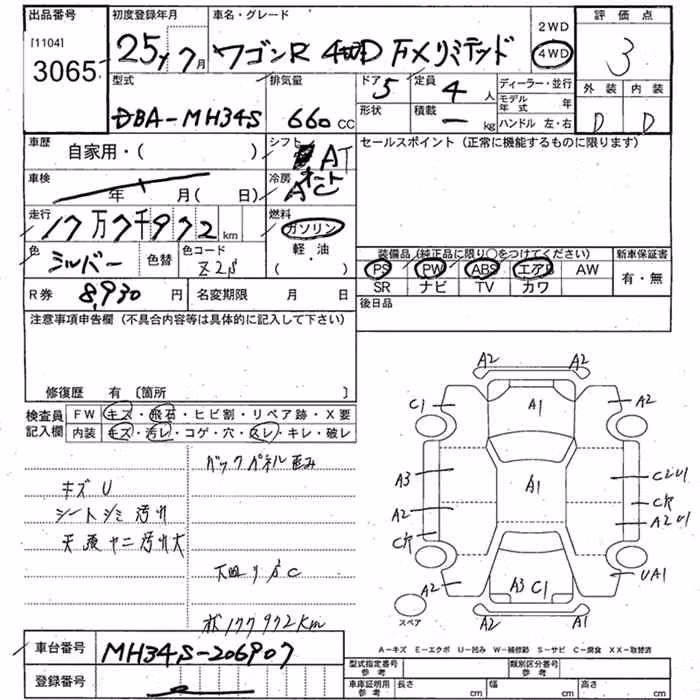 出品番号 初度登録年月 車名・グレード 2WD 評価点
[1104] 3065 25年7月 ワゴンR 4WD FXリミテッド 4WD 3
型式 排気量 ドア 5 定員 4人 ディーラー・並行 外装 内装
DBA-MH34S 660cc 形状 積載 ー kg モデル年式 年 D D
ハンドル 左・右
車歴 自家用・( ) シフト AT セールスポイント(正常に機能するものに限ります)
車検 年 月( 日) 冷房 オート AC
走行 17万7千972km 燃料 ガソリン
軽・油
( )
色 シルバー 色替 色コード Z2S
装備品(純正品に限り○をつけてください) 新車保証書
PS PW ABS エアB AW 有・無
SR ナビ TV カワ
R券 8,930円 名変期限 月 日 後日品
注意事項申告欄(不具合内容等は具体的に記入して下さい)
修復歴 有 〔箇所 〕
検査員記入欄 FW キズ・飛石・ヒビ割・リペア跡・X要
内装 キズ・汚レ・コゲ・穴・スレ・キレ・破レ
バックパネル歪み
キズU
シートシミ汚れ
天張ヤニ汚れ大
下回りサビC
ボ177972km
A2 A2
C1 A1 A2
A3 A1 C2U1
A2 C穴
C穴 A2U1
A2 A3 C1 UA1
スペア A2 A2
A-キズ E-エクボ U-凹み W-補修跡 S-サビ C-腐食 XX-取替済
車台番号 MH34S-206907
登録番号
型式指定番号参考 類別区分番号参考
車庫証明用参考 長さ cm 幅 cm 高さ cm